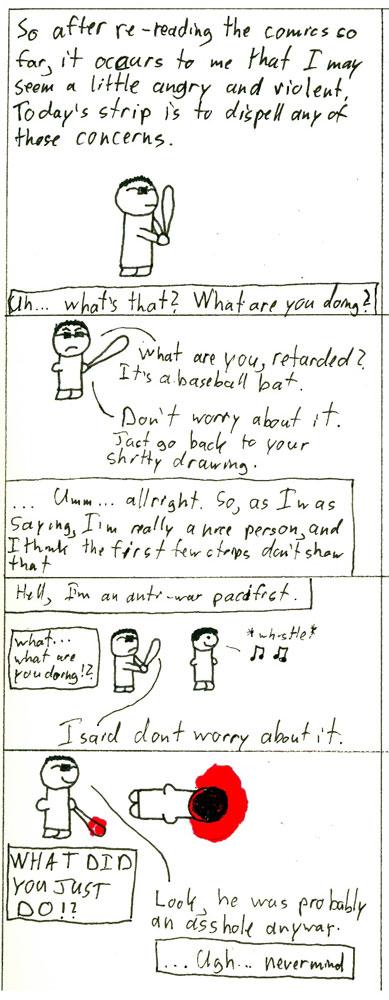 So after re-reading the comics so
far, it occurs to me that I may
seem a little angry and violent.
Today's strip is to dispell any of
those concerns.
Uh... what's that? What are you doing?
What are you, retarded?
It's a baseball bat.
Don't worry about it.
Just go back to your
shitty drawing.
... Umm... allright. So, as I was
saying, I'm really a nice person, and
I think the first few strips don't show
that
Hell, I'm an anti-war pacifist.
what...
what are
you doing!?
*whistle*
I said dont worry about it.
WHAT DID
YOU JUST
DO!?
Look, he was probably
an asshole anyway.
... Ugh... nevermind